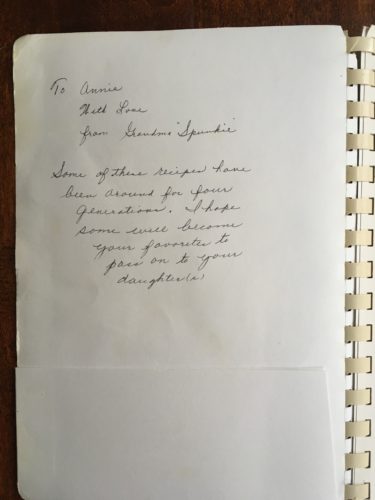 To Annie
With Love
from Grandma "Spunkie"
Some of these recipes have
been around for four
generations. I hope
some will become
your favorites to
pass on to your
daughter(s)